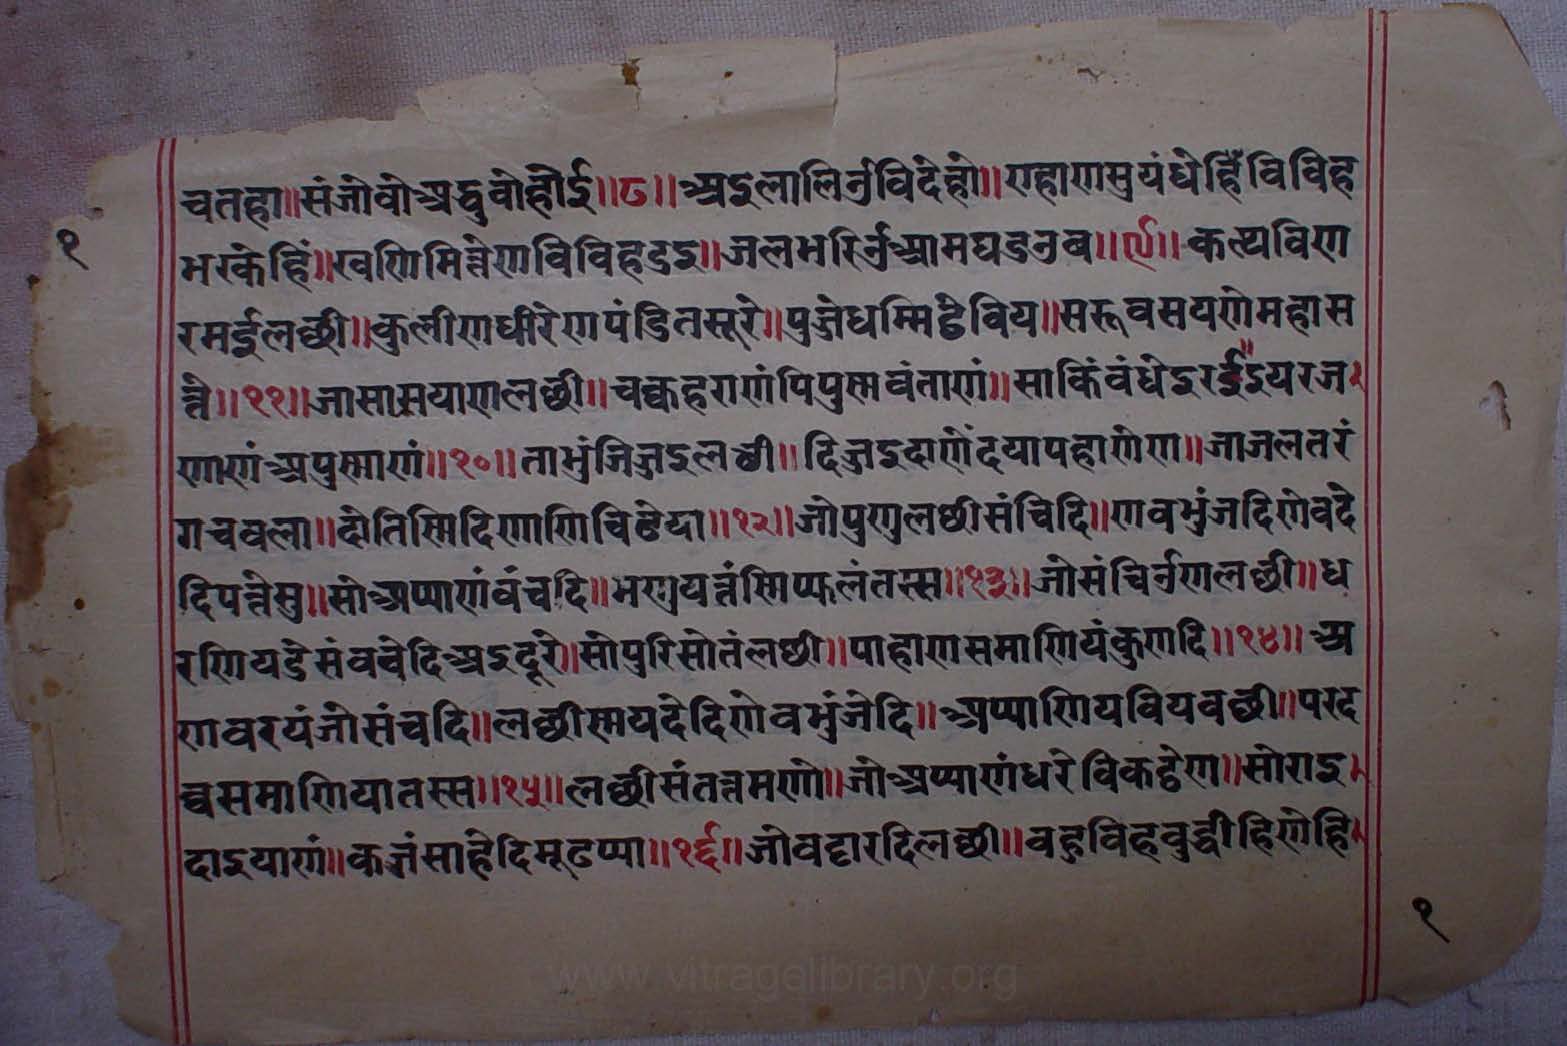 चतहा॥संजोवोअद्धुवोहोई॥८॥अइलालिर्नविदेहो॥एहाणसुयंधेहिँविविह
१
भरकेहिं॥खणमित्तेणविविहडइ॥जलभरिर्नआमघडनव॥९॥कत्यविण
रमईलछी॥कुलीणधीरेणपंडितसूरे॥पुज्जेधम्मिट्ठेविय॥सरूवसयणेमहास
त्ते॥११॥जासासयाणलछी॥चक्कहराणंपिपुस्मवंताणं॥साकिंबंधेइरईइयरज
णाणंअपुस्माणं॥१०॥ताभुंजिज्जइलछी॥दिज्जइदाणेंदयापहाणेण॥जाजलतरं
गचवला॥दोतिस्मिदिणाणिचिढेया॥१२॥जोपुणुलछीसंचिदि॥णवभुंजदिणेवदे
दिपत्तेसु॥सोअप्पाणंवंचदि॥मणुयत्तंणिप्फलंतस्स॥१३॥जोसंचिर्नणलछी॥ध
रणियडेसंववेदिअइदूरे॥सोपुरिसोतंलछी॥पाहाणसमाणियंकुणदि॥१४॥अ
णवरयंजोसंचदि॥लछीस्मयदेदिणेवभुंजेदि॥अप्पाणियवियवछी॥परद
व्वसमाणियातस्स॥१५॥लछीसंतत्तमणो॥जोअप्पाणंधरेविकट्ठेण॥सोराइ
दाइयाणं॥कज्जंसाहेदिमूढप्पा॥१६॥जोवद्दारदिलछी॥वहुविहवुद्धीहिणेहि
१
www.vitragelibrary.org